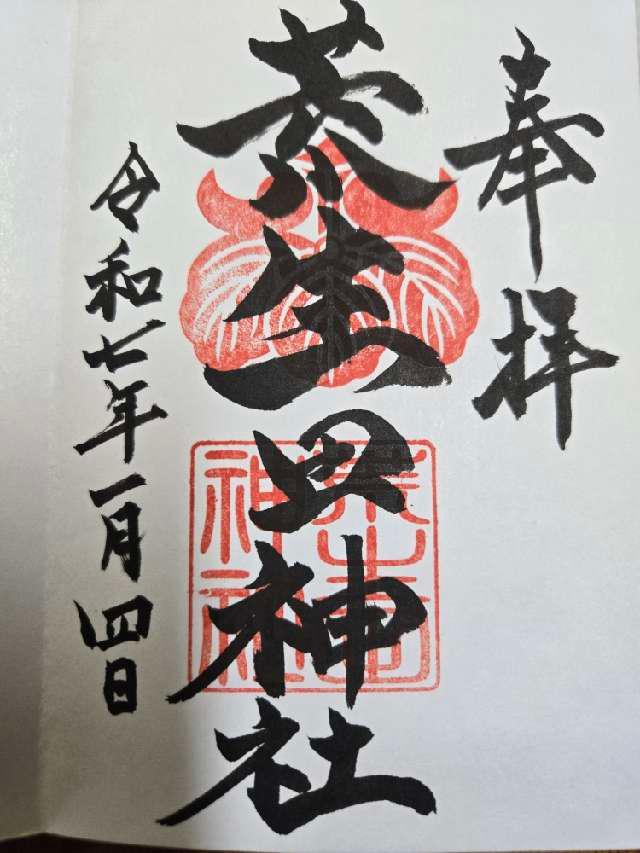 奉拝
荒生田神社
令和七年一月四日
神社